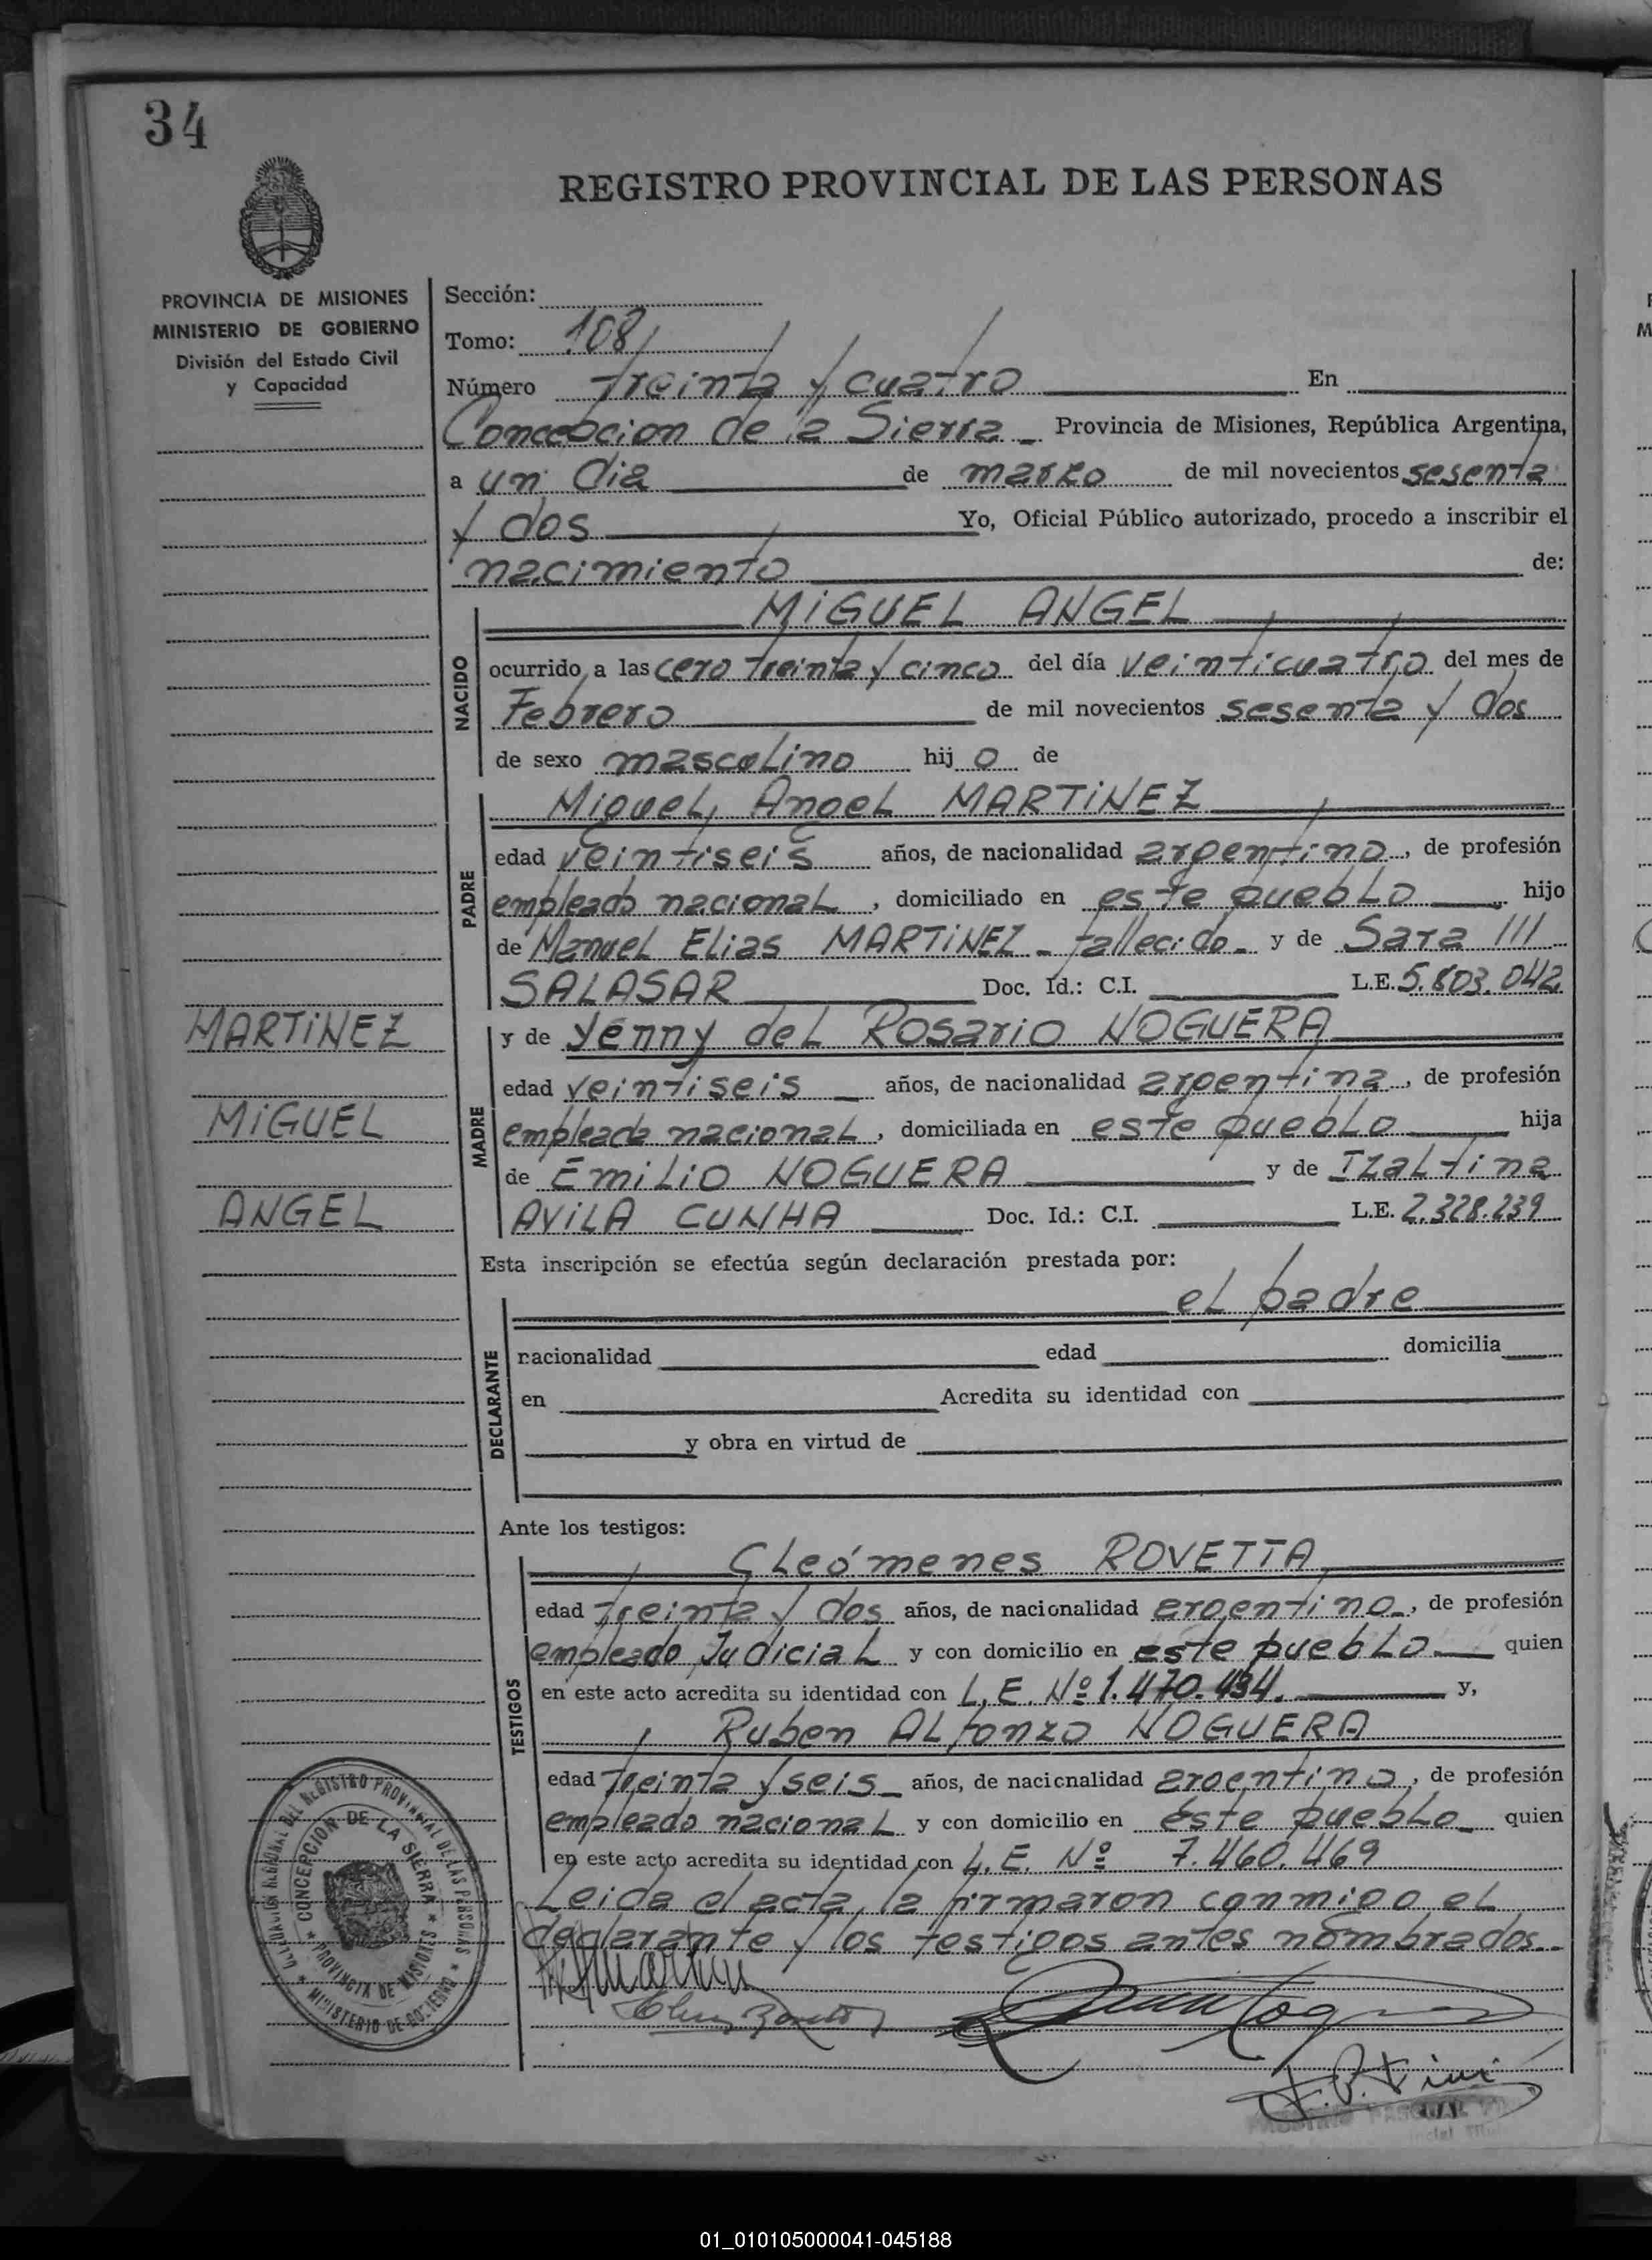 34
REGISTRO PROVINCIAL DE LAS PERSONAS
PROVINCIA DE MISIONES
MINISTERIO DE GOBIERNO
División del Estado Civil
y Capacidad
Sección:
Tomo: 108
Número treinta y cuatro En
Concepcion de la Sierra Provincia de Misiones, República Argentina,
a un dia de marzo de mil novecientos sesenta
y dos Yo, Oficial Público autorizado, procedo a inscribir el
nacimiento de:
NACIDO
MIGUEL ANGEL
ocurrido a las cero treinta y cinco del día veinticuatro del mes de
Febrero de mil novecientos sesenta y dos
de sexo masculino hij o de
PADRE
Miguel Angel MARTINEZ
edad veintiseis años, de nacionalidad argentino, de profesión
empleado nacional, domiciliado en este pueblo hijo
de Manuel Elias MARTINEZ - fallecido - y de Sara ///
SALASAR Doc. Id.: C.I. L.E. 5.803.042
MARTINEZ
MIGUEL
ANGEL
MADRE
y de Yenny del Rosario NOGUERA
edad veintiseis años, de nacionalidad argentina, de profesión
empleada nacional, domiciliada en este pueblo hija
de Emilio NOGUERA y de Izaltina
AVILA CUNHA Doc. Id.: C.I. L.E. 2.328.239
Esta inscripción se efectúa según declaración prestada por:
el padre
DECLARANTE
nacionalidad edad domicilia
en Acredita su identidad con
y obra en virtud de
Ante los testigos:
TESTIGOS
Cleómenes ROVETTA
edad treinta y dos años, de nacionalidad argentino, de profesión
empleado Judicial y con domicilio en este pueblo quien
en este acto acredita su identidad con L.E. Nº 1.470.434. y,
Ruben Alfonzo NOGUERA
edad treinta y seis años, de nacionalidad argentino, de profesión
empleado nacional y con domicilio en este pueblo quien
en este acto acredita su identidad con L.E. Nº 7.460.469
Leida el acta, la firmaron conmigo el
declarante y los testigos antes nombrados.
DELEGACION REGIONAL DEL REGISTRO PROVINCIAL DE LAS PERSONAS
* MINISTERIO DE GOBIERNO *
CONCEPCION DE LA SIERRA
* PROVINCIA DE MISIONES *
PASCUAL
01_010105000041-045188